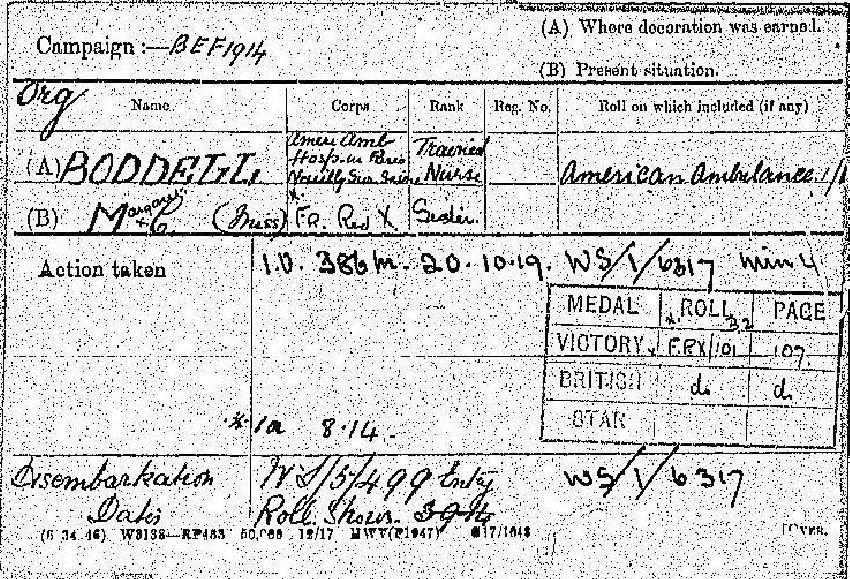 Campaign :— BEF 1914
(A) Where decoration was earned.
(B) Present situation.
Org
Name Corps Rank Reg. No. Roll on which included (if any)
(A) BODDELL Amer Amb Hosp. in Paris Neuilly Sur Seine Trained Nurse American Ambulance 1/1
(B) Margaret C (Miss) x Fr. Red X Sister
Action taken I.V. 386 M. 20.10.19. WS/1/6317 min 4
MEDAL x ROLL PAGE
VICTORY x F.RX/101 107
BRITISH do do
STAR
x 1a 8.14.
Disembarkation WS/5/499 Entry WS/1/6317
Dates Roll Shows
50,000 12/17 HWV(P1947)
[OVER.